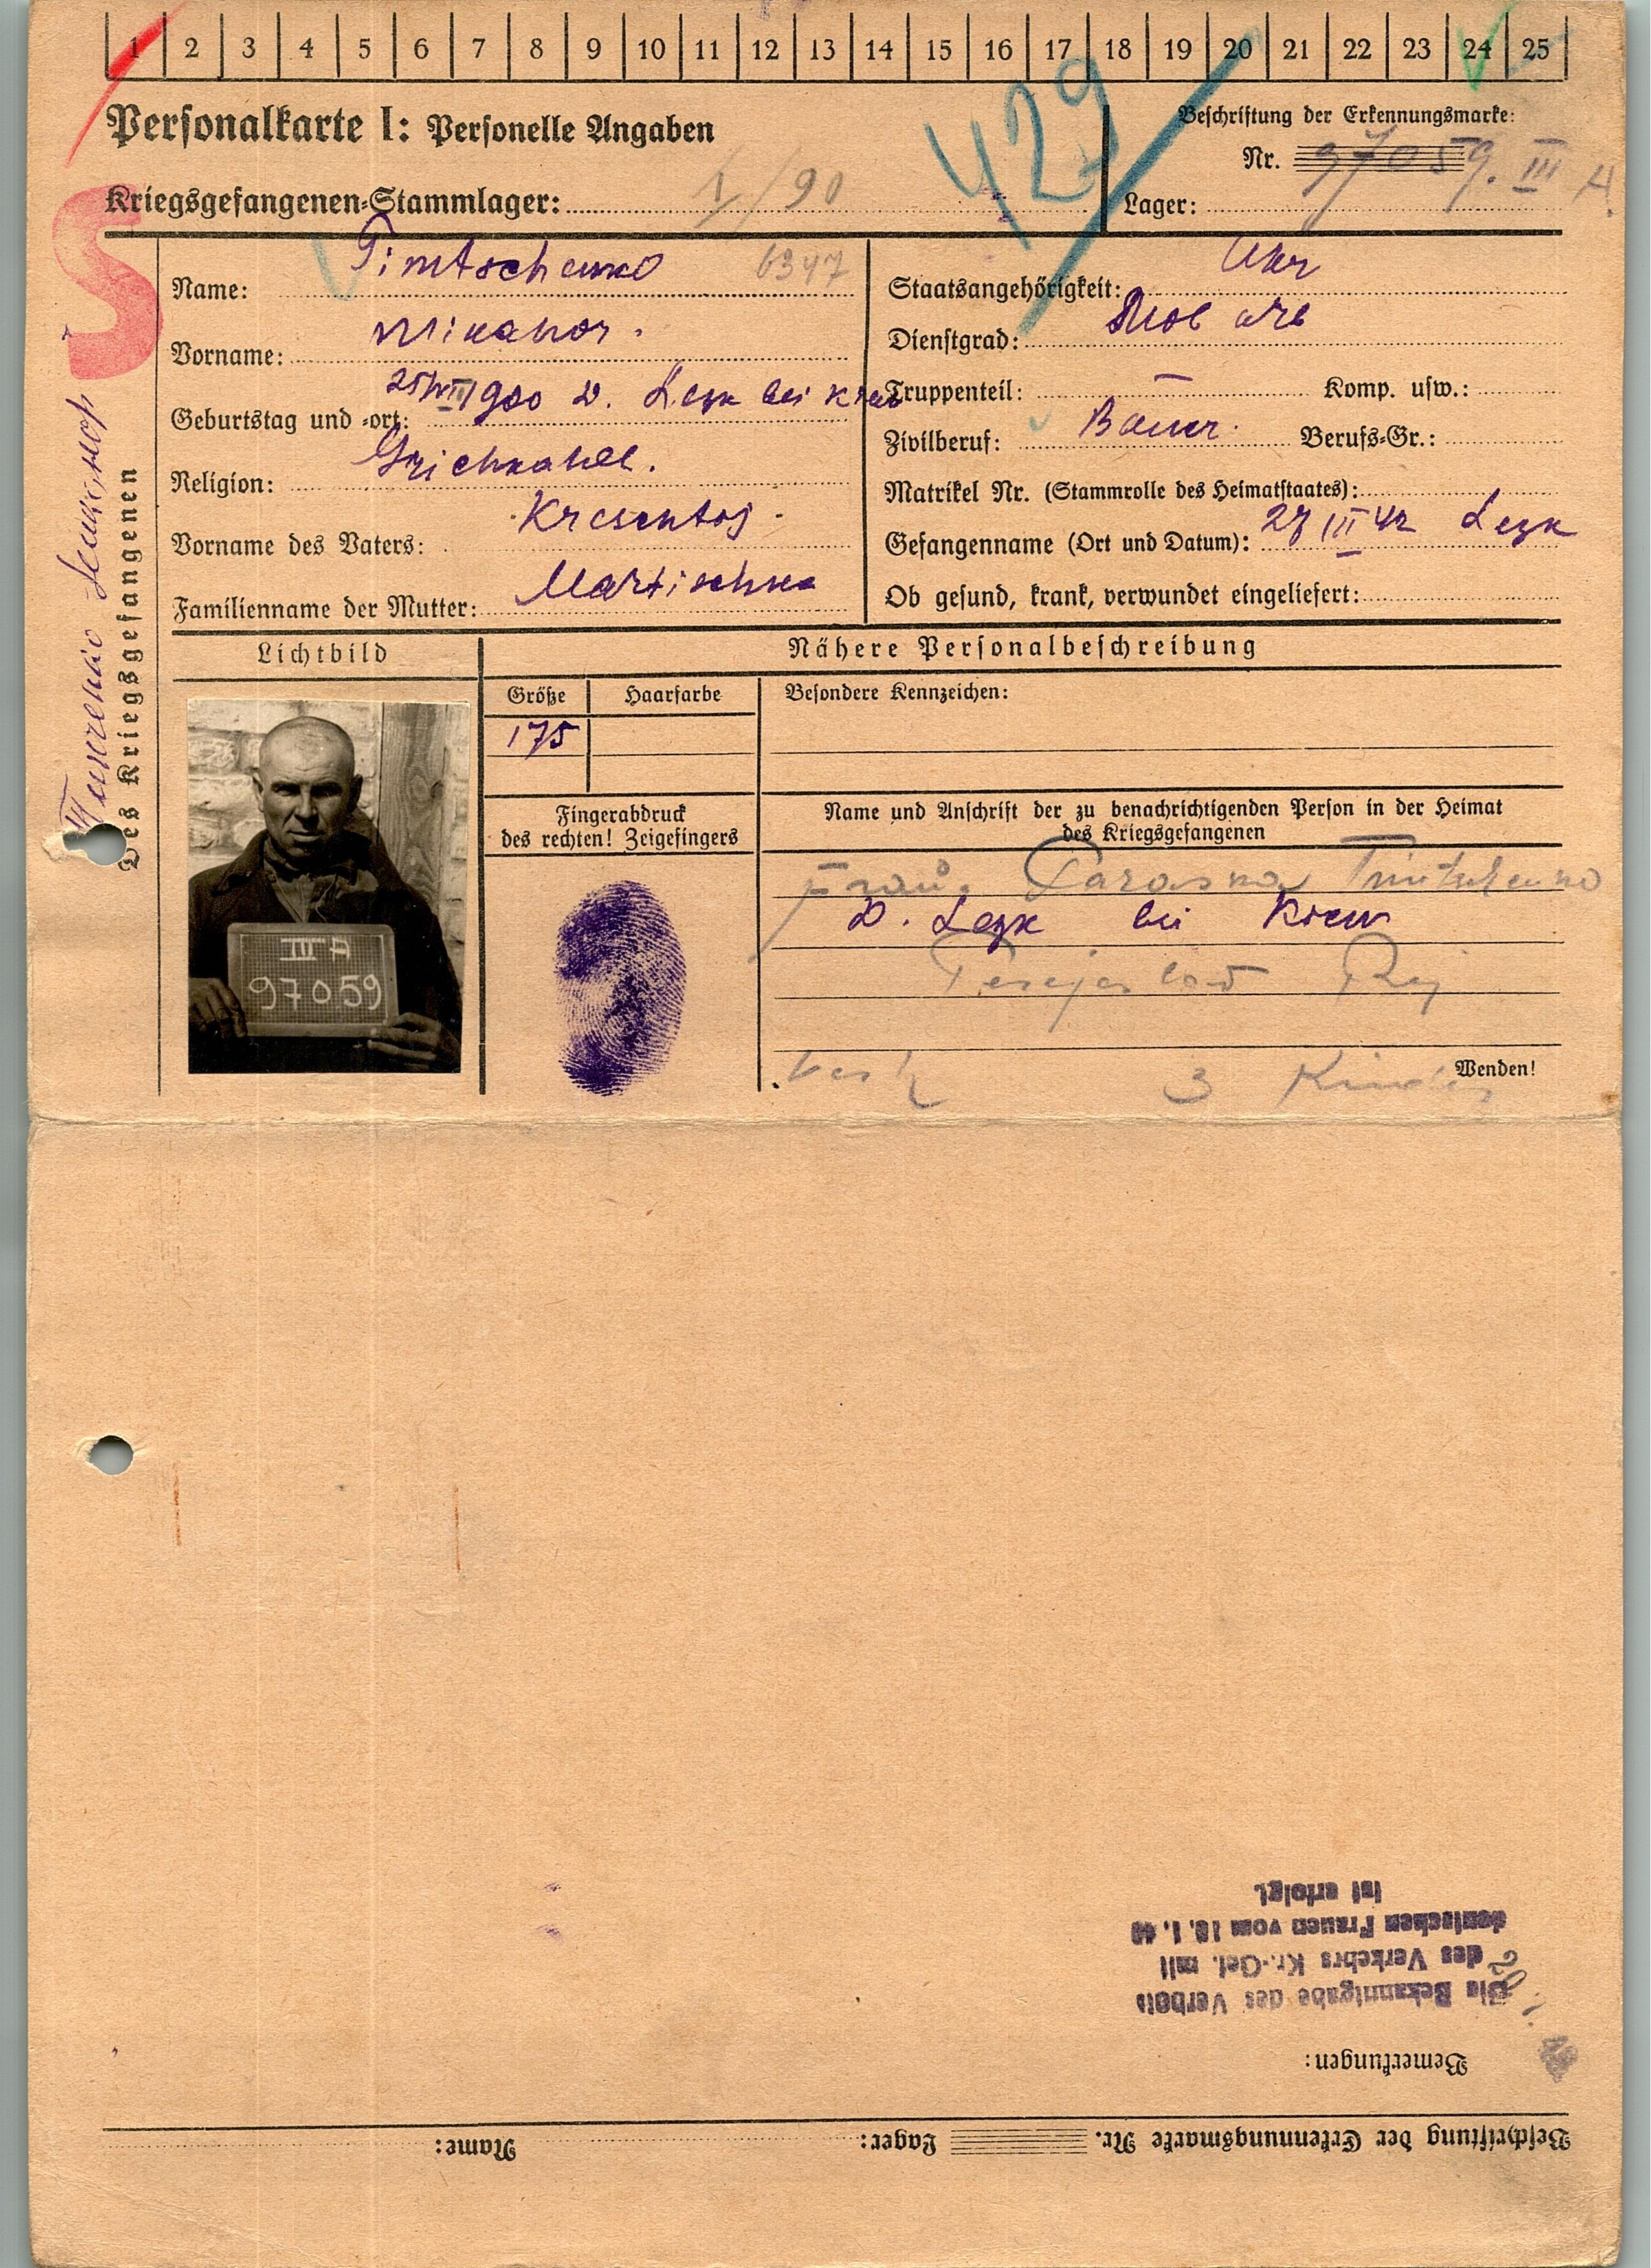 1 2 3 4 5 6 7 8 9 10 11 12 13 14 15 16 17 18 19 20 21 22 23 24 25
429
Personalkarte I: Personelle Angaben
Beschriftung der Erkennungsmarke:
Nr. 97059. III A
Kriegsgefangenen-Stammlager: /90
Lager:
S
Des Kriegsgefangenen
Name: Timtschenko 6347
Vorname: Nikanor.
Geburtstag und -ort: 1900 D. Lezk bei Kiew
Religion: Grichkahol.
Vorname des Vaters: Kresentoj.
Familienname der Mutter: Martischko
Staatsangehörigkeit: Ukr
Dienstgrad:
Truppenteil: — Komp. usw.:
Zivilberuf: Bauer. Berufs-Gr.:
Matrikel Nr. (Stammrolle des Heimatstaates):
Gefangenname (Ort und Datum): 27 III 42 Lezk
Ob gesund, krank, verwundet eingeliefert:
Lichtbild
Nähere Personalbeschreibung
Größe Haarfarbe
175
Besondere Kennzeichen:
Fingerabdruck
des rechten! Zeigefingers
Name und Anschrift der zu benachrichtigenden Person in der Heimat
des Kriegsgefangenen
Frau. Paraska Timtschenko
D. Lezk bei Kiew
Perejaslow Raj
3 Kinder
Wenden!
III A
97059
Beschriftung der Erkennungsmarke Nr. Lager: Name:
Bemerkungen:
Die Bekanntgabe des Verbots
des Verkehrs Kr.-Gef. mit
deutschen Frauen vom 10.1.40
ist erfolgt